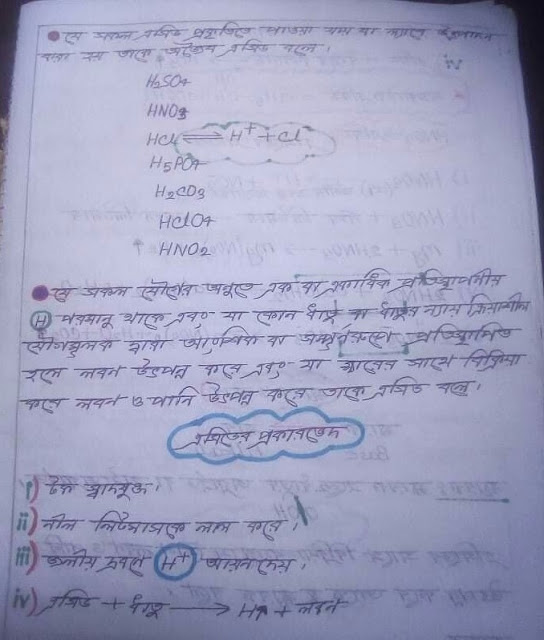 যে সকল এসিড প্রকৃতিতে পাওয়া যায় না ল্যাবে উৎপাদন
করা হয় তাকে অজৈব এসিড বলে।
H₂SO₄
HNO₃
HCl ⇌ H⁺ + Cl⁻
H₅PO₄
H₂CO₃
HClO₄
HNO₂
যে সকল যৌগের অনুতে এক বা একাধিক প্রতিস্থাপনীয়
(H) পরমানু থাকে এবং যা কোন ধাতু বা ধাতুর ন্যায় ক্রিয়াশীল
যৌগমূলক দ্বারা আংশিক বা সম্পূর্ণরূপে প্রতিস্থাপিত
হলে লবন উৎপন্ন করে এবং যা ক্ষারের সাথে বিক্রিয়া
করে লবন ও পানি উৎপন্ন করে তাকে এসিড বলে।
এসিডের প্রকারভেদ
i) টক স্বাদযুক্ত।
ii) নীল লিটমাসকে লাল করে।
iii) জলীয় দ্রবণে (H⁺) আয়ন দেয়।
iv) এসিড + ধাতু → H₂↑ + লবন